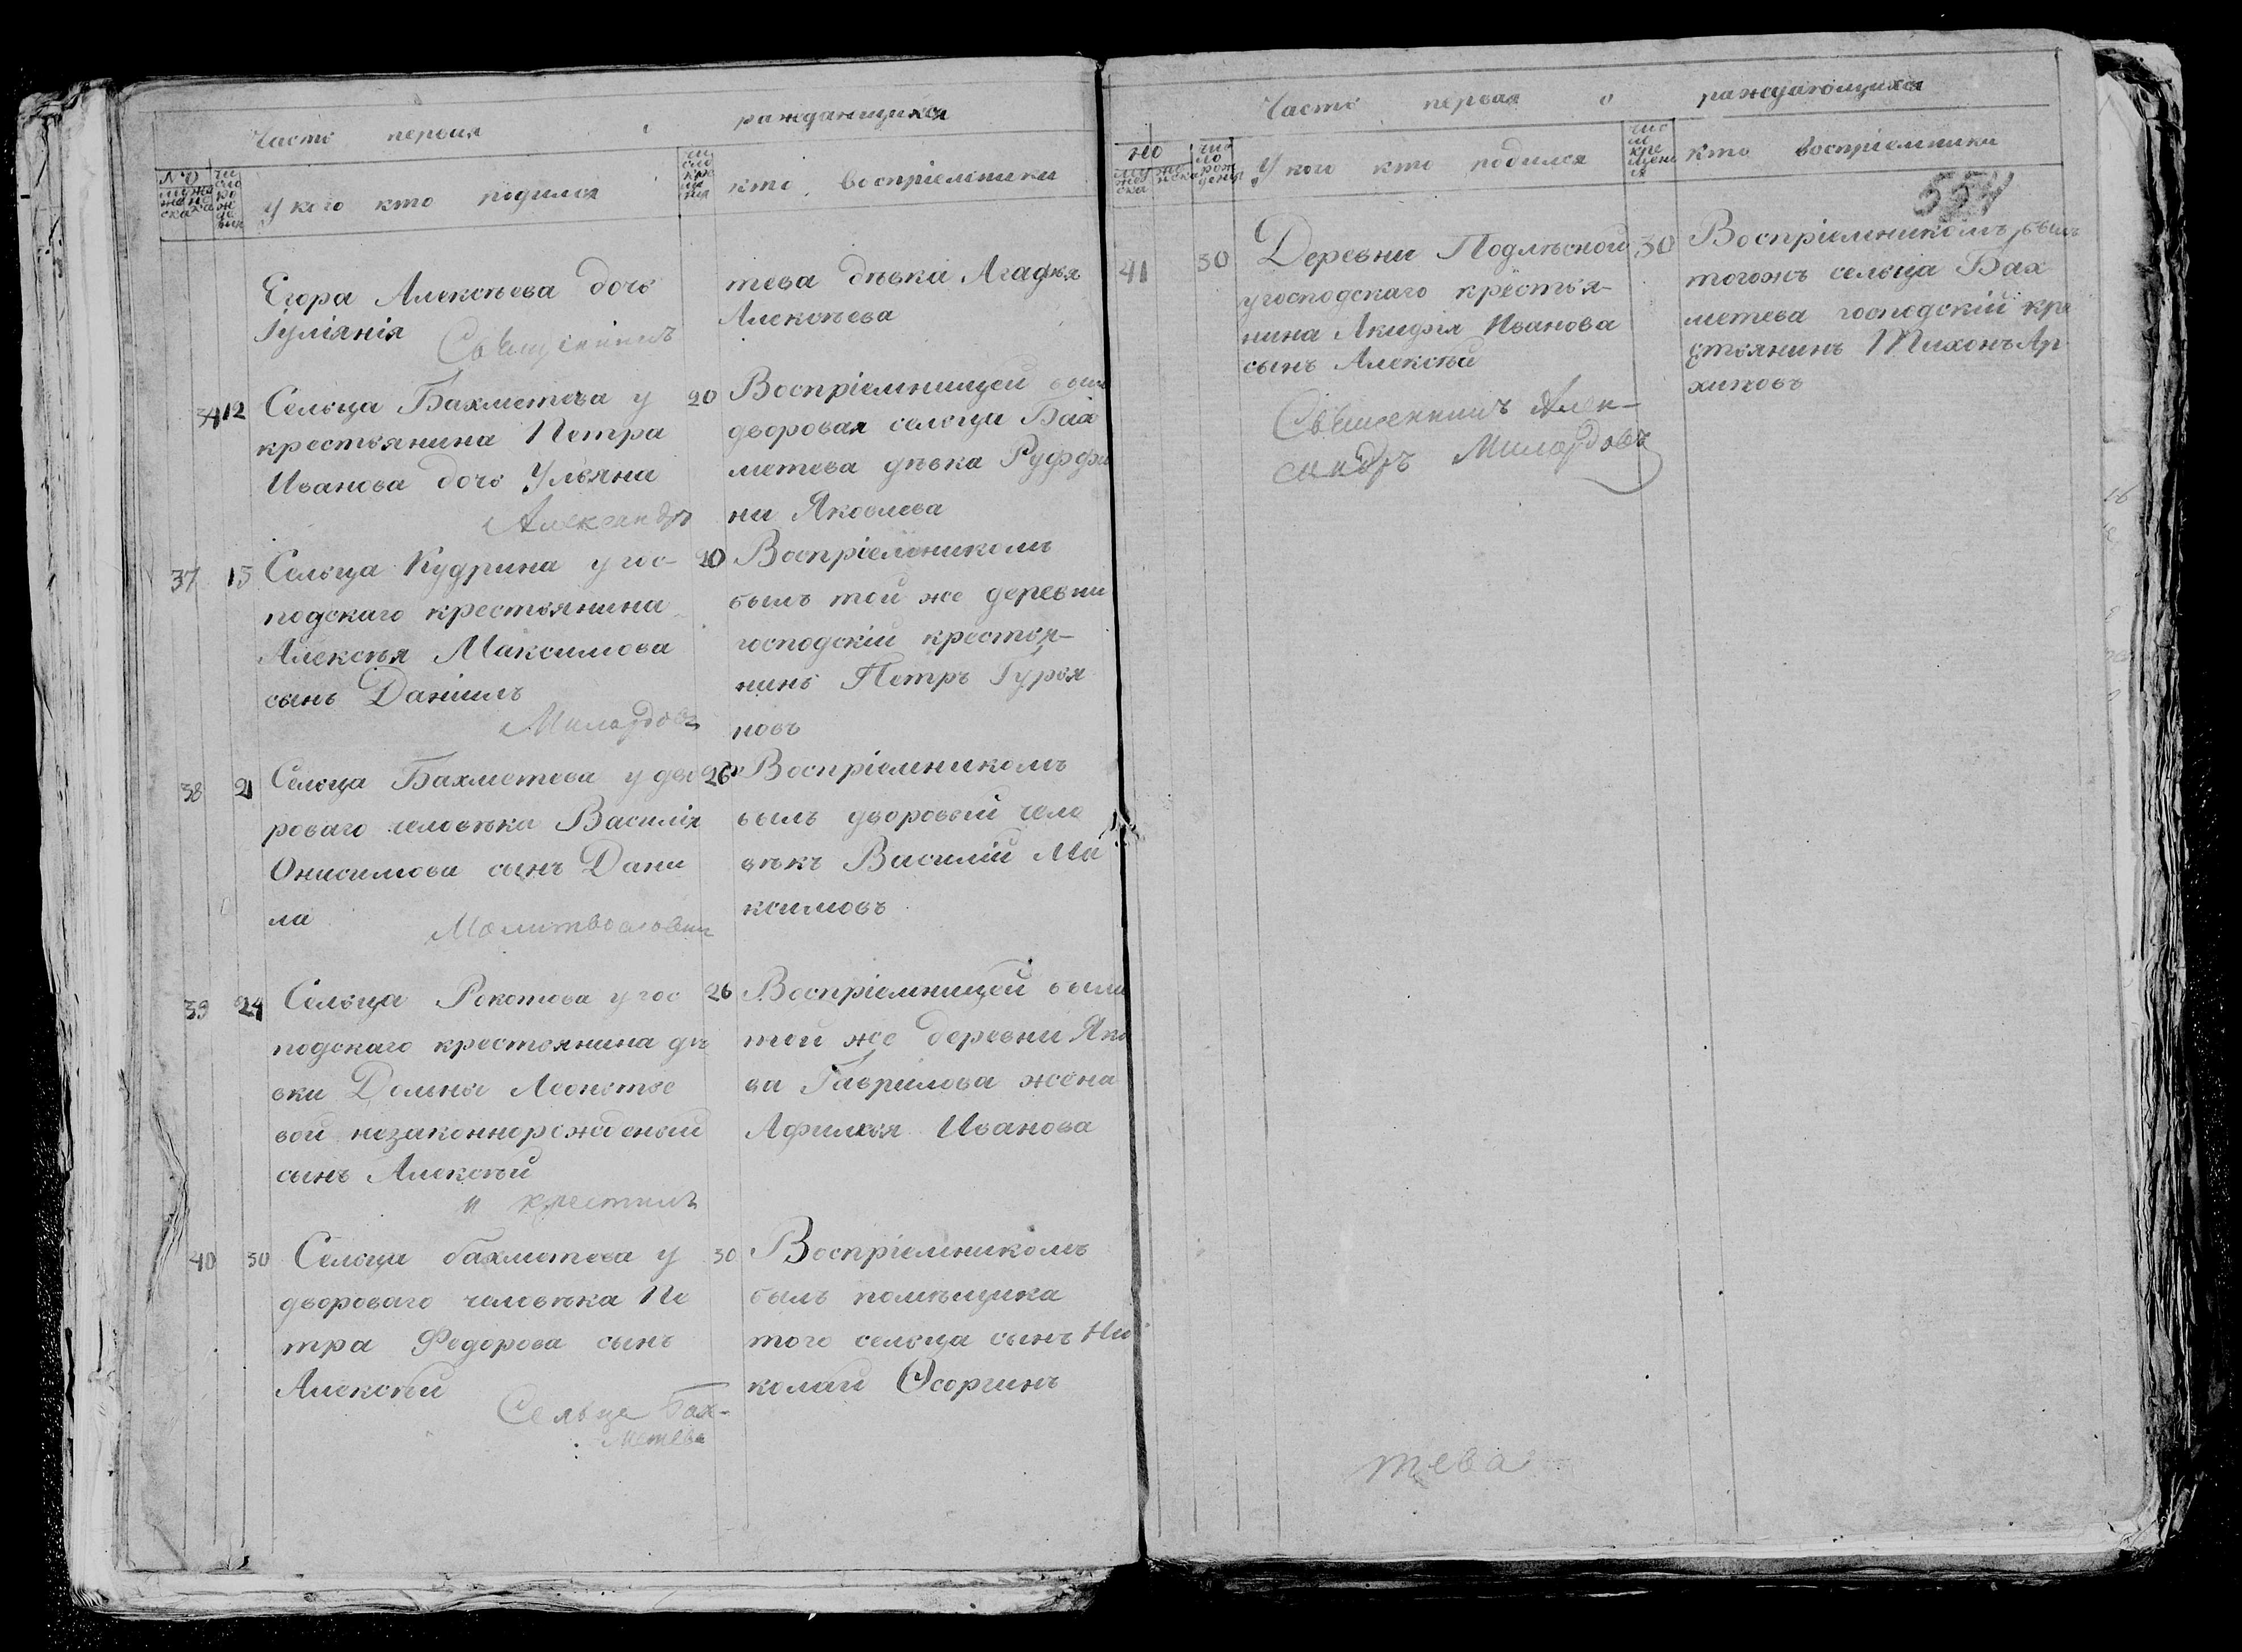 Часть первая о раждающихся
№
мужеска
женска
число рождения
У кого кто родился
число крещения
кто воспріемники
Егора Алексѣева дочь
Іуліянія
Священникъ
тева дѣвка Агафья
Алексѣева
34 12
Сельца Бахметева у
крестьянина Петра
Иванова дочь Ульяна
Александръ
20
Воспріемницей была
дворовая сельца Бах
метева дѣвка Руффи
на Яковлева
37 15
Сельца Кудрина у гос-
подскаго крестьянина
Алексѣя Максимова
сынъ Даніилъ
Милордовъ
20
Воспріемникомъ
былъ той же деревни
господскій крестья-
нинъ Петръ Гурья
новъ
38 21
Сельца Бахметева у дво
роваго человѣка Василія
Онисимова сынъ Дани
ла
Молитвословилъ
26
Воспріемникомъ
былъ дворовый чело
вѣкъ Василій Ма
ксимовъ
39 24
Сельца Рокотова у гос
подскаго крестьянина дѣ
вки Домны Леонтье
вой незаконнорожденый
сынъ Алексѣй
и крестилъ
26
Воспріемницей была
той же деревни Яко
ва Гаврилова жена
Афимья Иванова
40 30
Сельца бахметева у
двороваго человѣка Пе
тра Федорова сынъ
Алексѣй
Сельце Бах-
метева
30
Воспріемникомъ
былъ помѣщика
того сельца сынъ Ни
колай Осоргинъ
Часть первая о раждающихся
№
мужеска
женска
число рождения
У кого кто родился
число крещения
кто воспріемники
554
41 30
Деревни Подлѣсной
у господскаго крестья-
нина Акифія Иванова
сынъ Алексѣй
Священникъ Алек-
сандръ Милордовъ
30
Воспріемникомъ былъ
тогожъ сельца Бах
метева господскій кре
стьянинъ Тихонъ Ар
хиповъ
тева